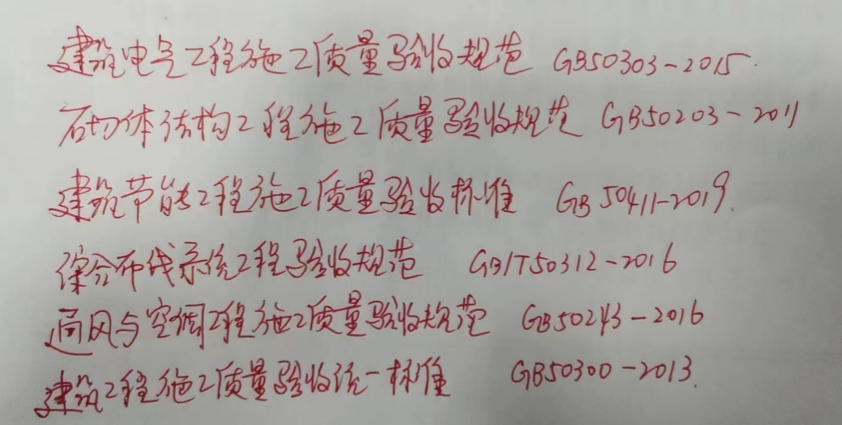 建筑电气工程施工质量验收规范 GB50303-2015.
砌体结构工程施工质量验收规范 GB50203-2011
建筑节能工程施工质量验收标准 GB50411-2019.
综合布线系统工程验收规范 GB/T50312-2016
通风与空调工程施工质量验收规范 GB50243-2016
建筑工程施工质量验收统一标准 GB50300-2013.